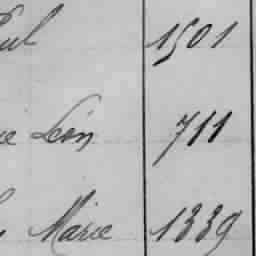 1501
Léon 711
Marie 1339